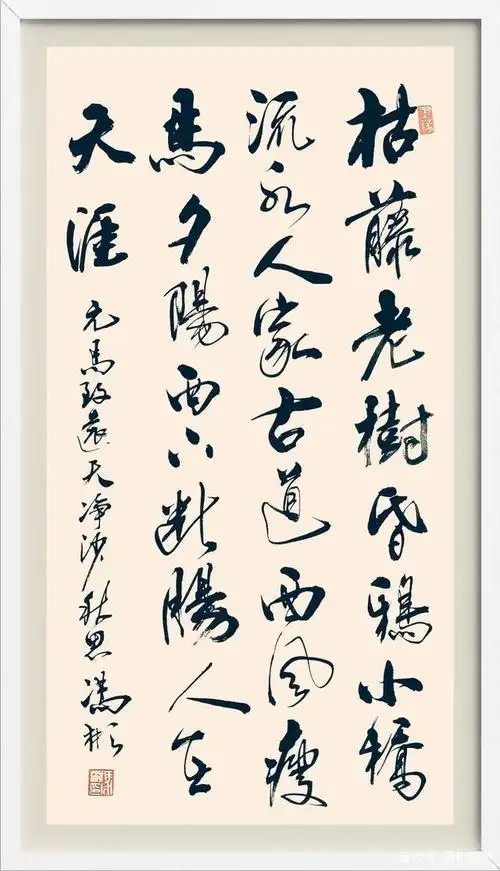 枯藤老樹昏鴉小橋
流水人家古道西風瘦
馬夕陽西下断腸人在
天涯
元馬致遠天净沙秋思馮彬